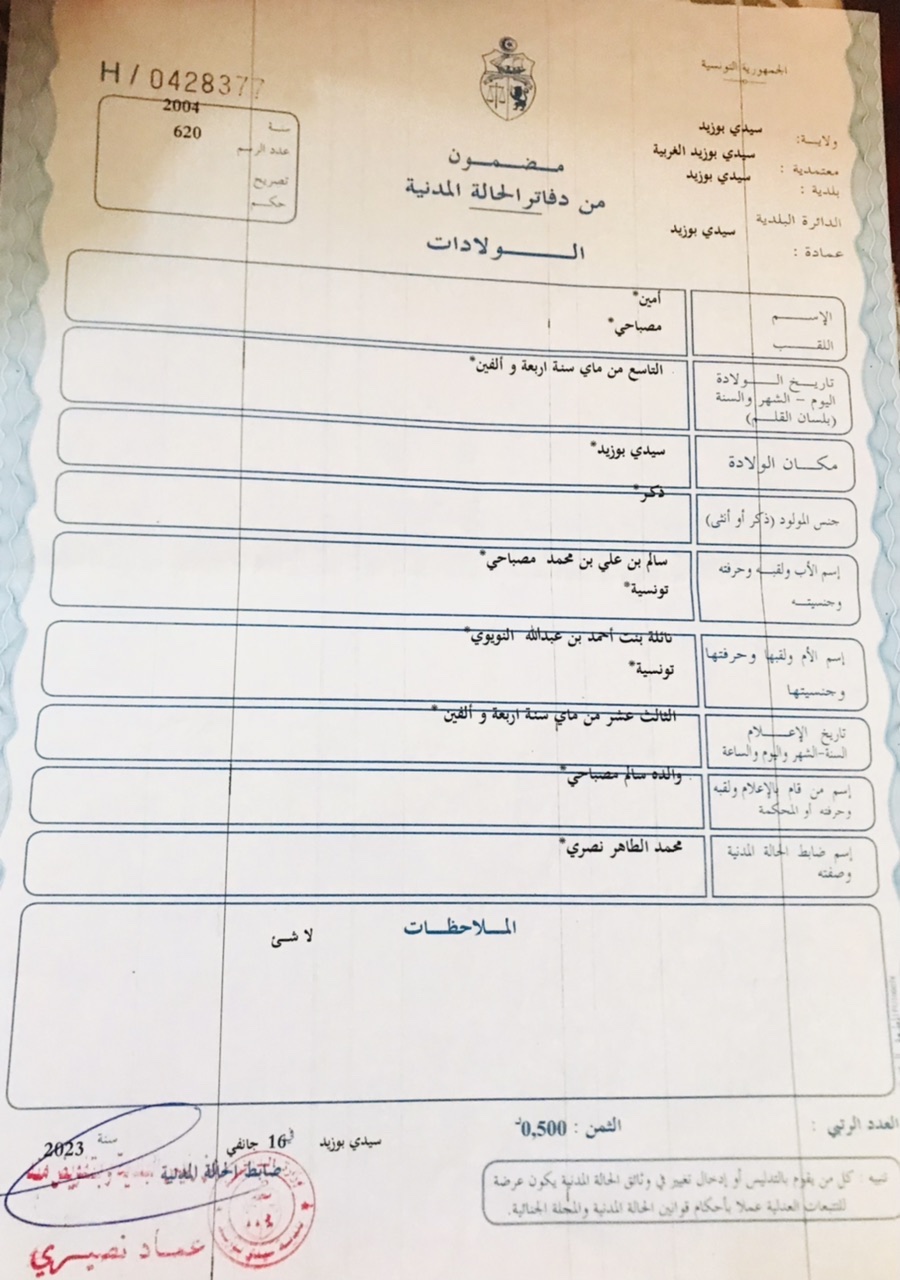 الجمهورية التونسية
H / 0428377
2004
سنة
620
عدد الرسم
تصريح
حكم
ولاية: سيدي بوزيد
معتمدية : سيدي بوزيد الغربية
بلدية : سيدي بوزيد
الدائرة البلدية سيدي بوزيد
عمادة :
مضمون
من دفاتر الحالة المدنية
الولادات
الإسم أمين*
اللقب مصباحي*
تاريخ الولادة التاسع من ماي سنة اربعة و ألفين*
اليوم - الشهر والسنة
(بلسان القلم)
مكان الولادة سيدي بوزيد*
جنس المولود (ذكر أو أنثى) ذكر*
إسم الأب ولقبه وحرفته سالم بن علي بن محمد مصباحي*
وجنسيته تونسية*
إسم الأم ولقبها وحرفتها نائلة بنت أحمد بن عبدالله النويوي*
وجنسيتها تونسية*
تاريخ الإعلام الثالث عشر من ماي سنة اربعة و ألفين *
السنة-الشهر واليوم والساعة
إسم من قام بالإعلام ولقبه والده سالم مصباحي*
وحرفته أو المحكمة
إسم ضابط الحالة المدنية محمد الطاهر نصري*
وصفته
الملاحظات
لا شئ
العدد الرتبي :
الثمن : 0,500د
سيدي بوزيد في 16 جانفي سنة 2023
ضابط الحالة المدنية
تنبيه : كل من يقوم بالتدليس أو إدخال تغيير في وثائق الحالة المدنية يكون عرضة
للتتبعات العدلية عملا بأحكام قوانين الحالة المدنية والمجلة الجنائية.
عماد نصيري